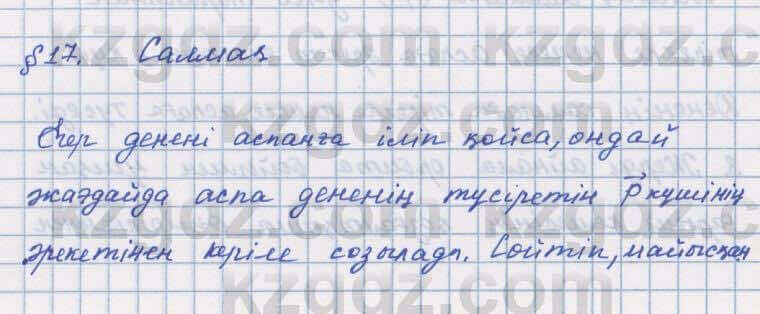 §17. Салмақ
Егер денені аспанға іліп қойса, ондай
жағдайда аспа дененің түсіретін P⃗ күшінің
әрекетінен керіле созылады. Сөйтіп, майысқан
kzgdz.com